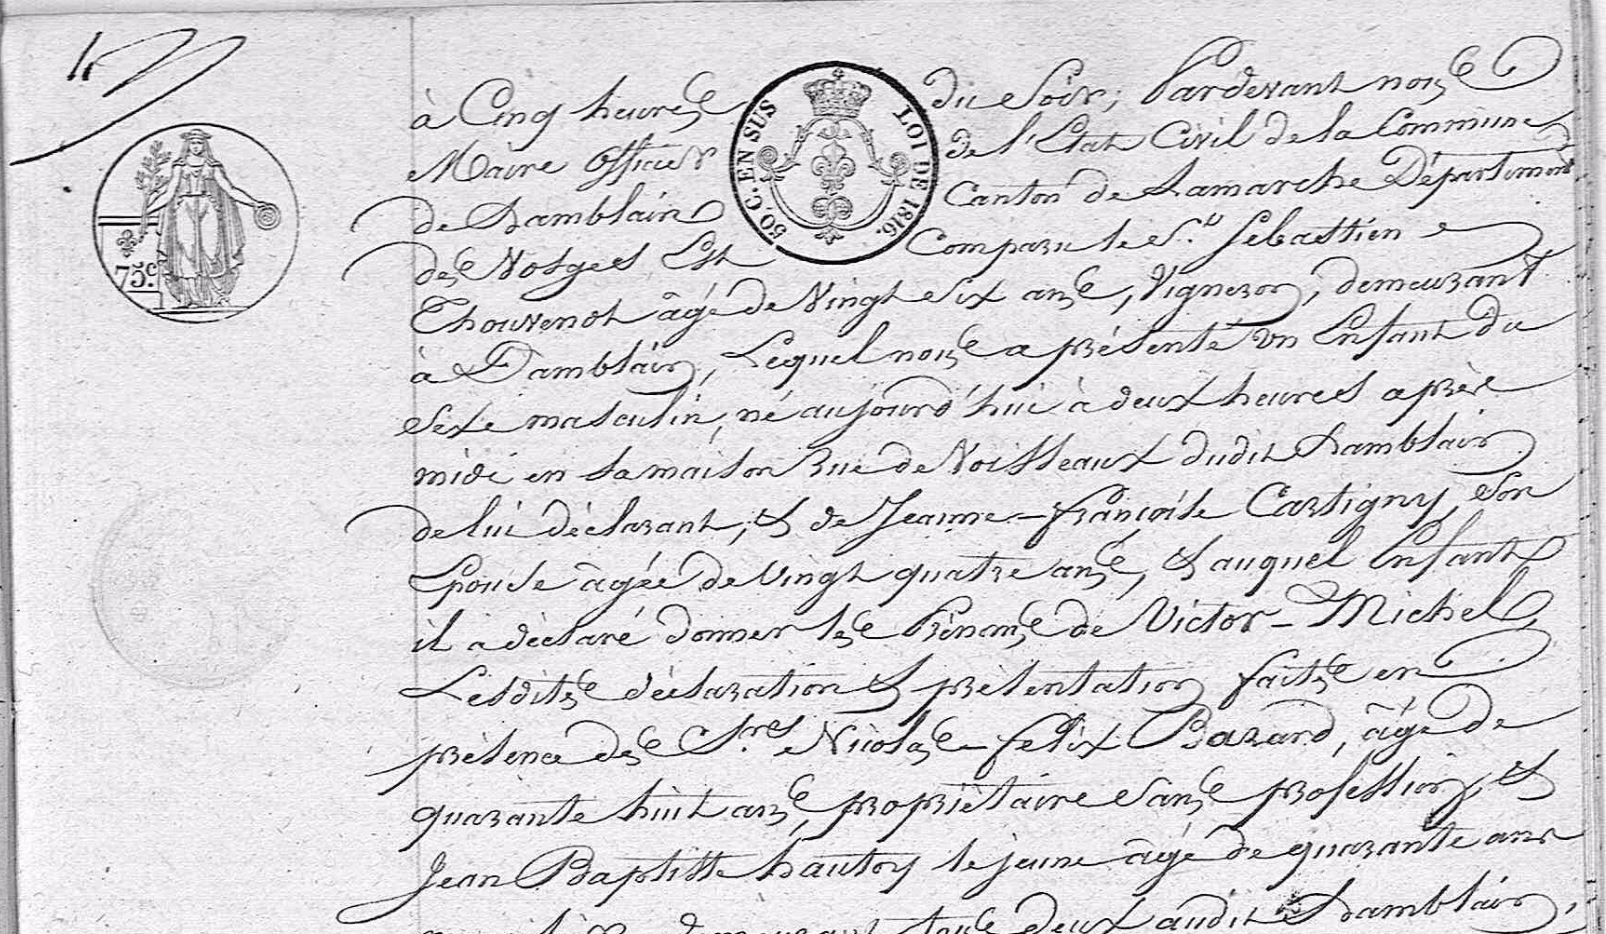 à Cinq heures du Soir; Pardevant nous
Maire Officier de l'Etat Civil de la Commune
de Damblain Canton de Lamarche Département
des Vosges Est Comparu le S.r Sebastien
Thouvenot âgé de Vingt Six ans, Vigneron, demeurant
à Damblain, Lequel nous a présenté Un Enfant du
Sexe masculin, né aujourd'hui à deux heures après
midi en sa maison Rue de Voisseaux dudit Damblain
de lui déclarant, & de Jeanne-françoise Cartigny, Son
Epouse âgée de Vingt quatre ans, & auquel Enfant
il a déclaré donner les Prénoms de Victor-Michel,
Lesdites déclaration & présentation faites en
présence des S.rs Nicolas-felix Bazard, âgé de
quarante huit ans, propriétaire Sans profession, &
Jean Baptiste hautoy le jeune âgé de quarante ans
demeurant tous deux audit Damblain,
50. C. EN SUS
LOI DE 1816.
75c.